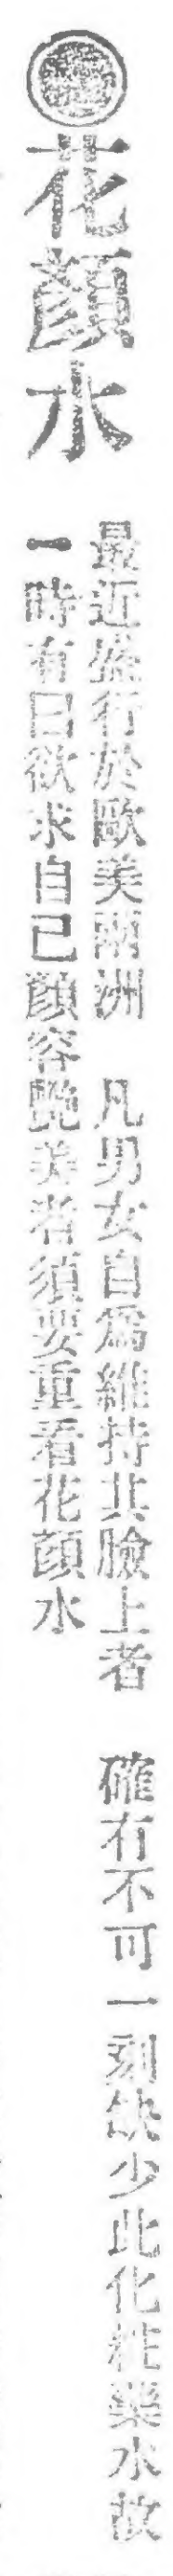 花顏水
最近盛行於歐美兩洲 凡男女自爲維持其臉上者 確有不可一刻缺少此化粧藥水故
一時有曰欲求自己顏容艶美者須要重看花顏水